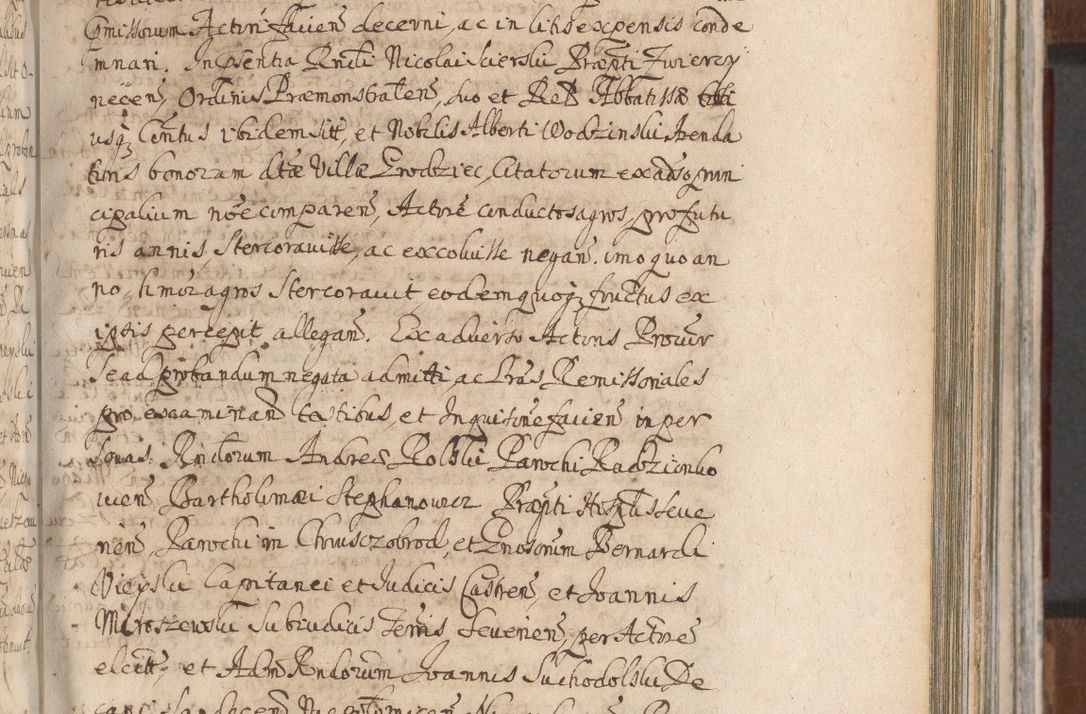 Cpmissorum Actori facien decerni, ac in litis expensis conde
mnari. In psentia Rndi Nicolai Sierski Præpti Zwierzy
necen, Ordinis Præmonstraten, suo et Rdi Abbatissæ
usq Contus ibidem sitt, et Nobilis Alberti Wodzinski Arenda
toris bonorum dtæ Villæ Grodziec, Citatorum ex adso prin
cipalium noe comparen, Actore conductos agros, pro futu
ris annis Stercoravisse, ac excoluisse negan. imo quo an
no, hmoi agros Stercoravit eodem quoq fructus ex
iptis percepit allegan. Ex adverso Actoris Procur
se ad probandum negata admitti, ac Lras Remissoriales
pro examinan testibus, et Inquisitione facien in per
sonas Rndorum Andreæ Rolski Parochi Radzionko
vien Bartholomæi Stephanowicz Præpti Hosplis Seve
rien, Parochi in Chruszczobrod, et Gnosorum Bernardi
Nieyski Capitanei et Judicis Castren, et Joannis
Miroszewski Subiudicis Terris Severien, per Actore
elect, et Adm Rndorum Joannis Suchodolski De